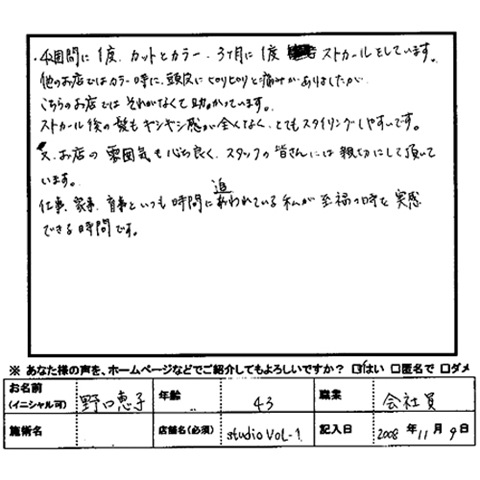 ・4週間に1度、カットとカラー、3ヶ月に1度 ストカールをしています。
他のお店ではカラー時に、頭皮にピリピリと痛みがありましたが、
こちらのお店では それがなくて助かっています。
ストカール後の髪もキシキシ感が全くなく、とてもスタイリングしやすいです。
又、お店の雰囲気も心地良く、スタッフの皆さんには親切にして頂いて
います。
仕事、家事、育事といつも時間に追われている私が至福の時を実感
できる時間です。
※ あなた様の声を、ホームページなどでご紹介してもよろしいですか? ☑はい □匿名で □ダメ
お名前
(イニシャル可) 野口恵子 年齢 43 職業 会社員
施術名 店舗名(必須) studio VOL-1 記入日 2008年11月9日